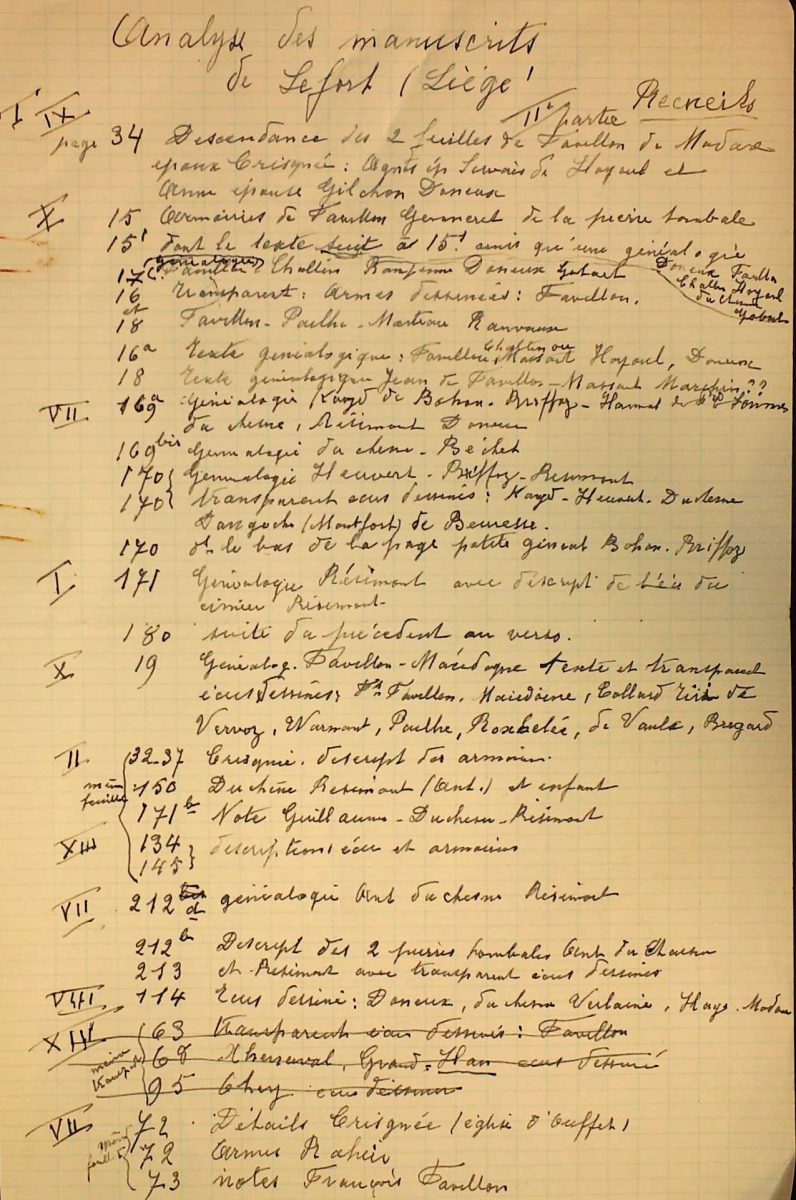 Analyse des manuscrits
de Lefort (Liège)
IIe partie Recueils
IX page 34 Descendance des 2 feuilles de Favillon de Modave
epoux Crisgnée : Agnès ép Servais de Hoyoul et
Anne epouse Gilchon Doneux
X 15 Armoiries de Favillon Geveneret de la pierre tombale
15' dont le texte suit à 15' ainsi qu'une généalogie
Doneux Favillon
Challin Hoyoul
du chesne
Gobart
17 (généalogies) Favillon Challin Doneux Gobart
16 transparent : Armes dessinées : Favillon.
et
18 Favillon - Pailhe - Marteau
16a texte généalogique : Favillon, Massart Hoyoul, Doneux
18 texte généalogique Jean de Favillon - Massart Marchin ??
VII 169a Généalogie de Bohon - Briffoz -
du chesne, Résimont Doneux
169bis Généalogie du chesne - Béchet
170 Généalogie Heuvert - Briffoz - Résimont
170 transparent écus dessinés : - Heuvert. Duchesne
(Montfort) de Beuresse.
170 ds le bas de la page petite généal Bohon. Briffoz
I 171 Généalogie Résimont avec descript de l'écu du
cimier Résimont
180 suite du précédent au verso.
X 19 Généalog. Favillon - Macédogne texte et transparent
écus dessinés : Favillon. Macédoine, Collard de
Vervoz, Warnant, Pailhe, Roxhelée, de Vaulx, Bregard
II 32-37 Crisgnée. descript des armoiries.
même feuille 150 Du chêne Résimont (Ant.) et enfant
171b Note Guillaume - Duchesne - Résimont
XIII 134 descriptions écu et armoiries
145
VII 212 d généalogie Ant du chesne Résimont
212b Descript des 2 pierres tombales Ant du Chesne
213 et Résimont avec transparent écus dessinés
VIII 114 Ecus dessiné : Doneux, du chesne Verlaine, Haye. Modave
XIV 63 transparent écus dessinés : Favillon
68 Xhesseval, Grand-Han écus dessiné
95 écu dessiner
VII 72 Détails Crisgnée (église d'Ouffet)
72 Armes Rahier
73 notes François Favillon